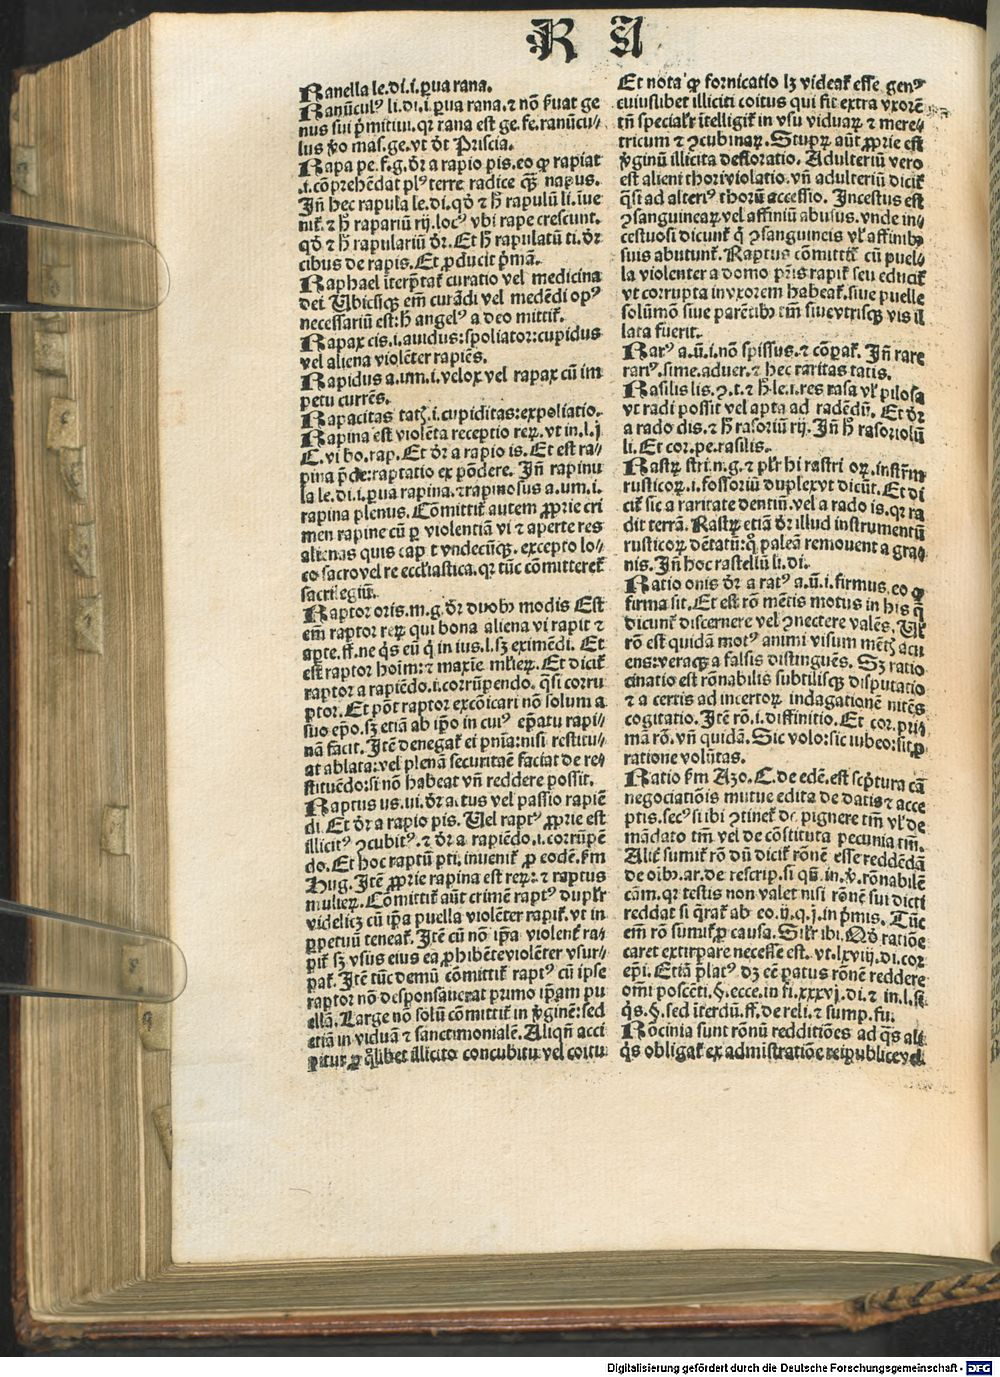 R A
Ranella le.di.i.ꝑua rana.
Ranūculꝰ li.di.i.ꝑua rana.⁊ nō ẜuat ge
nus sui pͥmitiui.qꝛ rana est ge.fe.ranūcu⸗
lus ꝟo mas.ge.vt dͫt Priscia.
Rapa pe.f.g.dꝛ̄ a rapio pis.eo ꝙ rapiat
.i.cōprehēdat plꝰ terre radice qͣꝫ napus.
Jn̄ hec rapula le.di.qd̓ ⁊ h̓ rapulū li.iue
nit̄ ⁊ h̓ rapariū rij.locꝰ vbi rape crescunt.
qd̓ ⁊ h̓ rapulariū dꝛ̄.Et h̓ rapulatū ti.dꝛ̄
cibus de rapis.Et ꝓducit pͥmā.
Raphael īterp̄tat̄ curatio vel medicina
dei. Vbicūqꝫ em̄ curādi vel medēdi opꝰ
necessariū est:h̓ angelꝰ a deo mittit̄.
Rapax cis.i.auidus:spoliator:cupidus
vel aliena violēter rapiēs.
Rapidus a.um.i.velox vel rapax cū im
petu currēs.
Rapacitas tatꝭ.i.cupiditas:expoliatio.
Rapina est violēta receptio reꝝ.vt in.l.j
C.vi bo.rap.Et dꝛ̄ a rapio is.Et est ra⸗
pina p̄de:raptatio ex pōdere. Jn̄ rapinu
la le.di.i.ꝑua rapina.⁊ rapinosus a.um.i.
rapina plenus. Cōmittit̄ autem ꝓprie cri
men rapine cū ꝑ violentiā vi ⁊ aperte res
alienas quis capit vndecūqꝫ.excepto lo⸗
co sacro vel re eccl̓iastica.qꝛ tūc cōmitteret̄
sacrilegiū.
Raptor oris.m.g.dꝛ̄ duobꝰ modis Est
em̄ raptor reꝝ qui bona aliena vi rapit ⁊
aꝑte.ff.ne qͥs eū qͥ in ius.l.sꝫ eximēdi. Et
est raptor hoīm:⁊ maxīe mulieꝝ.Et dicit̄
raptor a rapiēdo.i.corrūpendo.qͣsi corru
ptor.Et pōt raptor excōicari nō solum a
suo epō.sꝫ etiā ab ip̄o in cuiꝰ ep̄atu rapi⸗
nā facit. Jtē denegat̄ ei pn̄ia:nisi restitu⸗
at ablata:vel plenā securitatē faciat de re⸗
stituēdo:si nō habeat vn̄ reddere possit.
Raptus us.ui.dꝛ̄ actus vel passio rapiē
di.Et dꝛ̄ a rapio pis.Vel raptꝰ ꝓprie est
illicitꝰ ↄcubitꝰ.⁊ dꝛ̄ a rapiēdo.i.corrūpē
do.Et hoc raptū pti.inuenit̄ ꝓ eodē.ẜm
Hug.Jtē ꝓprie rapina est reꝝ:⁊ raptus
mulieꝝ.Cōmittit̄ aūt crimē raptꝰ dupl̓r
videlicꝫ cū ip̄a puella violēter rapit̄.vt in
ꝑpetuū teneat̄.Jtē cū nō ip̄a violent̄ ra⸗
pit̄ sꝫ vsus eius ea ꝓhibēte violēter vsur⸗
pat̄.Jtē tūc demū cōmittit̄ raptꝰ cū ipse
raptor nō desponsauerat primo ip̄am pu
ellā.Large nō solū cōmittit̄ in ꝟgine:sed
etiā in viduā ⁊ sanctimonialē.Aliqn̄ acci
pitur ꝓ qͦlibet illicito concubitu vel coitu
Et nota ꝙ fornicatio lꝫ videat̄ esse genꝰ
cuiuslibet illiciti coitus qui fit extra vxorē
tn̄ special̓r ītelligit̄ in vsu viduaꝝ ⁊ mere⸗
tricum ⁊ ↄcubinaꝝ.Stupꝝ aūt ꝓprie est
ꝟginū illicita defloratio. Adulteriū vero
est alieni thori violatio.vn̄ adulteriū dicit̄
qͣsi ad alteriꝰ thorū accessio. Jncestus est
ↄsanguineaꝝ vel affiniū abusus.vnde in⸗
cestuosi dicunt̄ qͥ ↄsanguineis vl̓ affinibꝰ
suis abutunt̄. Raptus cōmittit̄ cū puel⸗
la violenter a domo pr̄is rapit̄ seu educit̄
vt corrupta in vxorem habeat̄.siue puelle
solūmō siue parētibꝰ tm̄ siue vtrisqꝫ vis il
lata fuerit.
Rarꝰ a.ū.i.nō spissus.⁊ cōꝑat̄. Jn̄ rare
rariꝰ.sime.aduer.⁊ hec raritas tatis.
Rasilis lis.ↄ.t.⁊ h̓ le.i.res rasa vl̓ pilosa
vt radi possit vel apta ad radēdū. Et dꝛ̄
a rado dis.⁊ h̓ rasoriū rij. Jn̄ h̓ rasoriolū
li.Et cor.pe.rasilis.
Rastꝝ stri.n.g.⁊ pl̓r hi rastri oꝝ.instr̄m
rusticoꝝ.i.fossoriū duplex vt dicūt.Et di
cit̄ sic a raritate dentiū.vel a rado is.qꝛ ra
dit terrā. Rastꝝ etiā dꝛ̄ illud instrumentū
rusticoꝝ dētatū:qͦ paleā remouent a gra⸗
nis.Jn̄ hoc rastellū li.di.
Ratio onis dꝛ̄ a ratꝰ a.ū.i.firmus.eo ꝙ
firma sit.Et est rō mētis motus in his q̄
dicunt̄ discernere vel ↄnectere valēs. Vl̓
rō est quidā motꝰ animi visum mētꝭ acu
ens:veraqꝫ a falsis distinguēs. Sꝫ ratio
cinatio est rōnabilis subtilisqꝫ disputatio
⁊ a certis ad incertoꝝ indagationē nitēs
cogitatio. Jtē rō.i.diffinitio.Et cor.pri⸗
mā rō.vn̄ quidā.Sic volo:sic iubeo:sit ꝓ
ratione volūtas.
Ratio ẜm Azo.C.de edē.est scpͥtura cā
negociatiōis mutue edita de datis ⁊ acce
ptis.secꝰ si ibi ↄtinet̄ de pignere tm̄ vl̓ de
mādato tm̄ vel de cōstituta pecunia tm̄.
Alit̄ sumit̄ rō dū dicit̄ rōnē esse reddēdā
de oībꝰ.ar.de rescrip.si qn̄.in.ꝟ.rōnabilē
cām.qꝛ testis non valet nisi rōnē sui dicti
reddat si qͣrat̄ ab eo.ij.q.j.in pͥmis. Tūc
em̄ rō sumit̄ ꝓ causa.Sil̓r ibi.Qd̓ ratiōe
caret extirpare necesse est.vt.lxviij.di.cor
ep̄i. Etiā p̄latꝰ dꝫ eē ꝑatus rōnē reddere
om̄i poscēti.§.ecce.in fi.xxxvj.di.⁊ in.l.si
qͥs.§.sed īterdū.ff.de reli.⁊ sump.fu.
Rōcinia sunt rōnū redditiōes ad qͣs ali
qͥs obligat̄ ex admīstratiōe reipublice vel
Digitalisierung gefördert durch die Deutsche Forschungsgemeinschaft - DFG